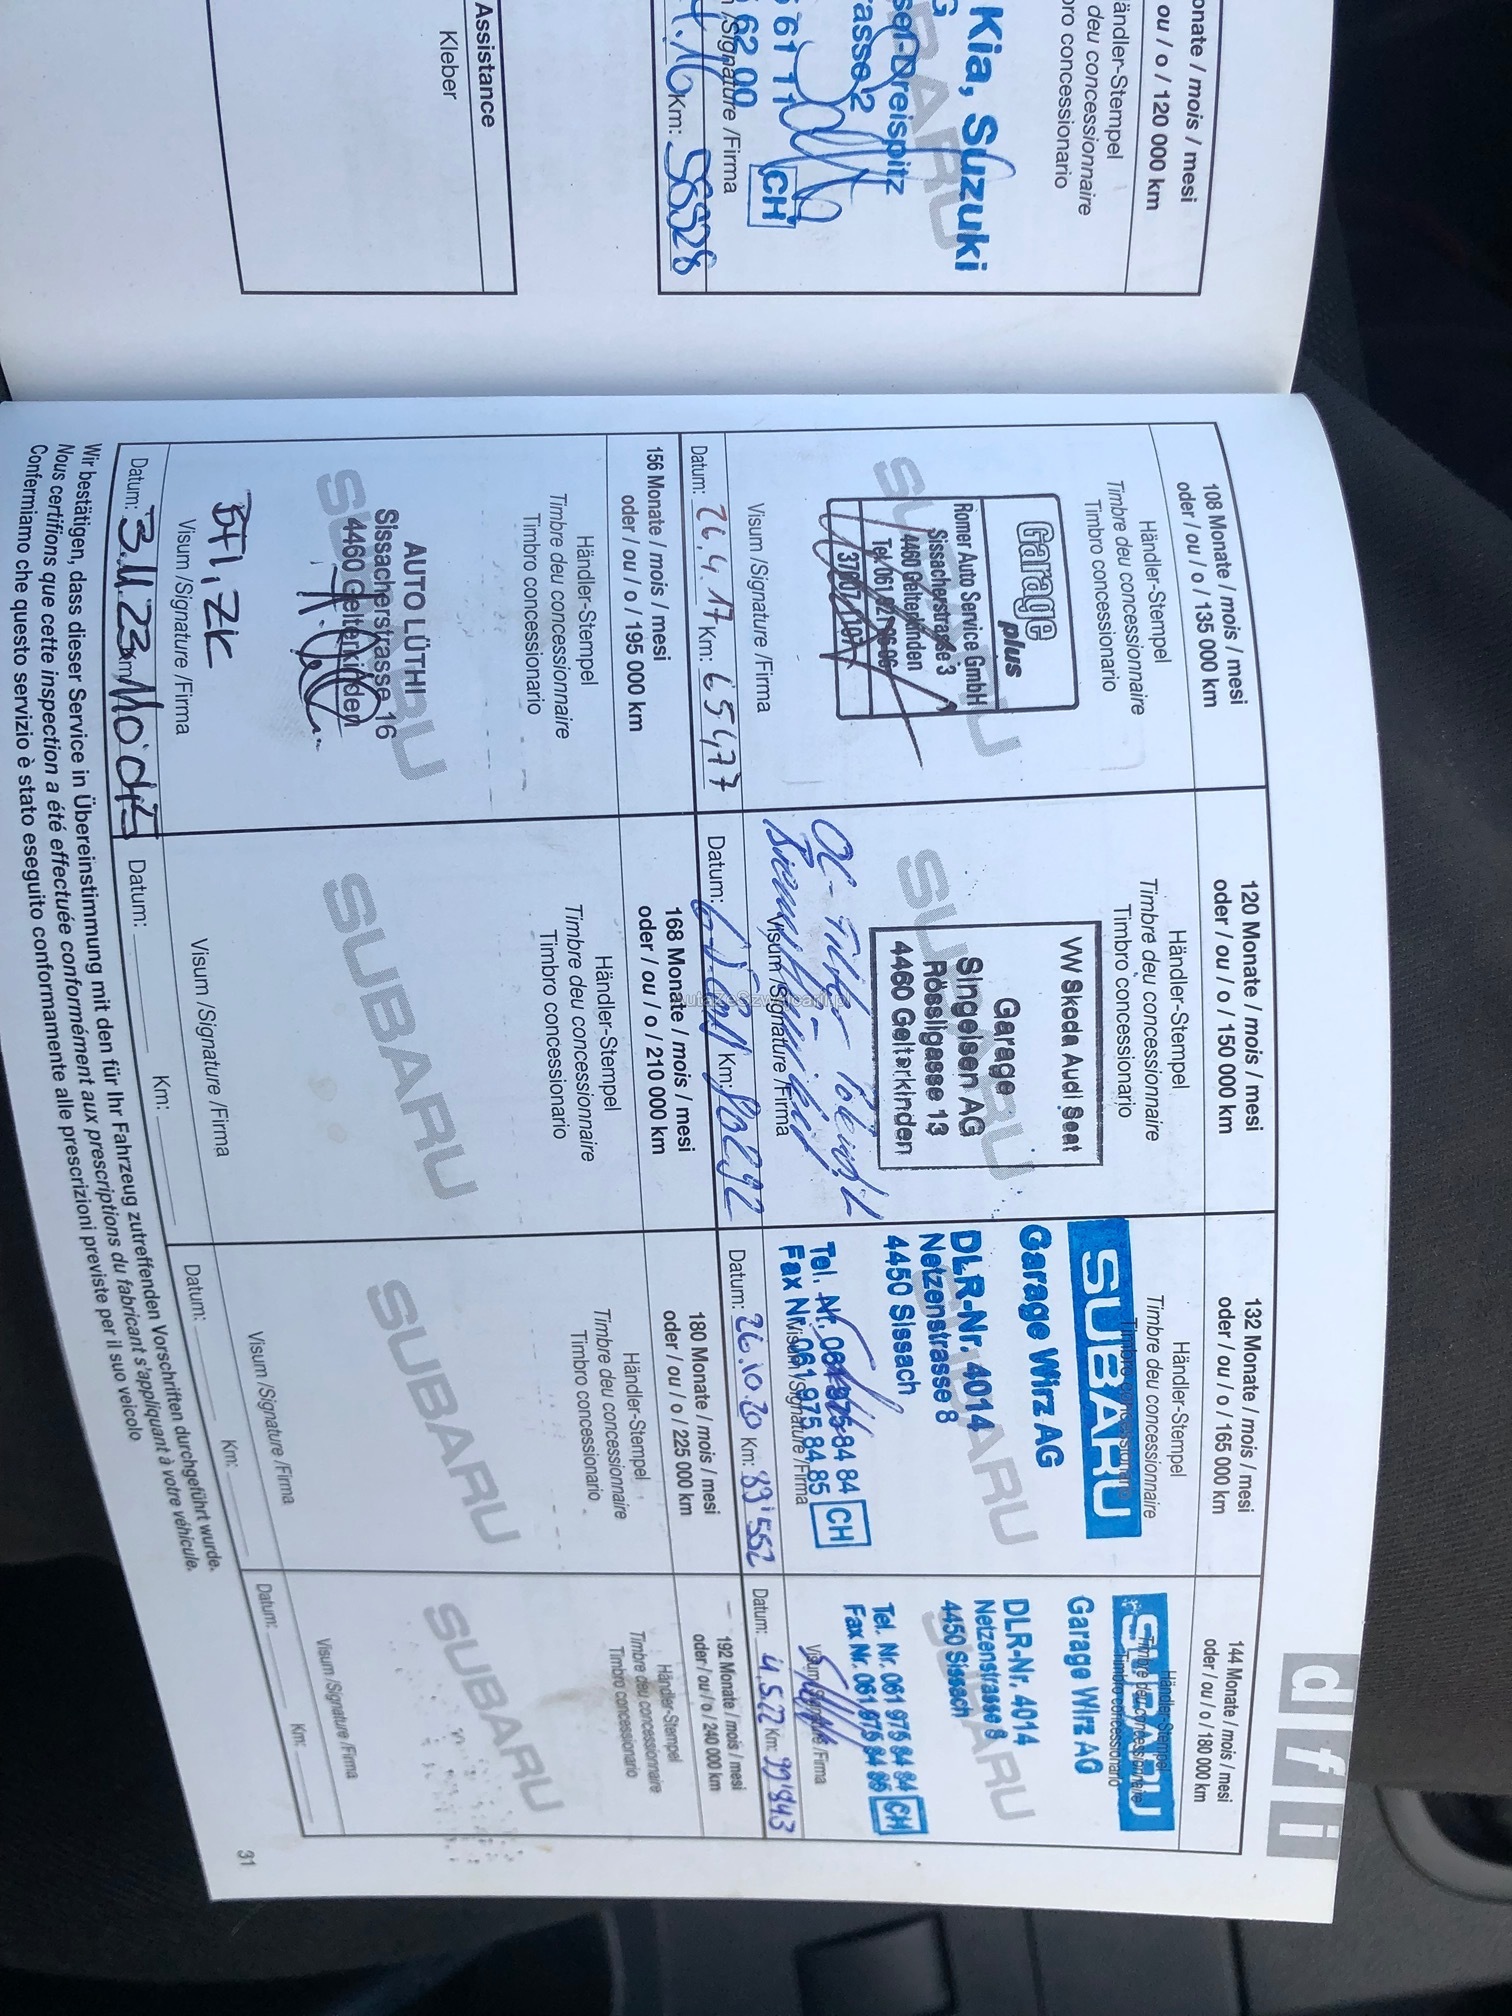 onate / mois / mesi
ou / o / 120 000 km
ändler-Stempel
deu concessionnaire
bro concessionario
Kia, Suzuki
G
ser-Dreispitz
asse 2
61 11
62 00
CH
/Signature /Firma
Km: 56528
Assistance
Kleber
d f i
108 Monate / mois / mesi
oder / ou / o / 135 000 km
Händler-Stempel
Timbre deu concessionnaire
Timbro concessionario
SUBARU
Garage
plus
Romer Auto Service GmbH
Sissacherstrasse 3
4460 Gelterkinden
Visum /Signature /Firma
Datum: 26.4.17 Km: 65477
120 Monate / mois / mesi
oder / ou / o / 150 000 km
Händler-Stempel
Timbre deu concessionnaire
Timbro concessionario
VW Skoda Audi Seat
SUBARU
Garage
Singeisen AG
Rössligasse 13
4460 Gelterkinden
Visum /Signature /Firma
Datum: Km: 80292
132 Monate / mois / mesi
oder / ou / o / 165 000 km
Händler-Stempel
Timbre deu concessionnaire
Timbro concessionario
SUBARU
Garage Wirz AG
SUBARU
DLR-Nr. 4014
Netzenstrasse 8
4450 Sissach
Tel. Nr. 061 975 84 84
Fax Nr. 061 975 84 85 CH
Visum /Signature /Firma
Datum: 26.10.20 Km: 89'552
144 Monate / mois / mesi
oder / ou / o / 180 000 km
Händler-Stempel
Timbre deu concessionnaire
Timbro concessionario
SUBARU
Garage Wirz AG
SUBARU
DLR-Nr. 4014
Netzenstrasse 8
4450 Sissach
Tel. Nr. 061 975 84 84
Fax Nr. 061 975 84 85 CH
Visum /Signature /Firma
Datum: 4.5.22 Km: 99'943
156 Monate / mois / mesi
oder / ou / o / 195 000 km
Händler-Stempel
Timbre deu concessionnaire
Timbro concessionario
SUBARU
AUTO LÜTHI
Sissacherstrasse 16
4460 Gelterkinden
Visum /Signature /Firma
Datum: 3.11.23
168 Monate / mois / mesi
oder / ou / o / 210 000 km
Händler-Stempel
Timbre deu concessionnaire
Timbro concessionario
SUBARU
Visum /Signature /Firma
Datum: Km:
180 Monate / mois / mesi
oder / ou / o / 225 000 km
Händler-Stempel
Timbre deu concessionnaire
Timbro concessionario
SUBARU
Visum /Signature /Firma
Datum: Km:
192 Monate / mois / mesi
oder / ou / o / 240 000 km
Händler-Stempel
Timbre deu concessionnaire
Timbro concessionario
SUBARU
Visum /Signature /Firma
Datum: Km:
Wir bestätigen, dass dieser Service in Übereinstimmung mit den für Ihr Fahrzeug zutreffenden Vorschriften durchgeführt wurde.
Nous certifions que cette inspection a été effectuée conformément aux prescriptions du fabricant s'appliquant à votre véhicule.
Confermiamo che questo servizio è stato eseguito conformamente alle prescrizioni previste per il suo veicolo
31